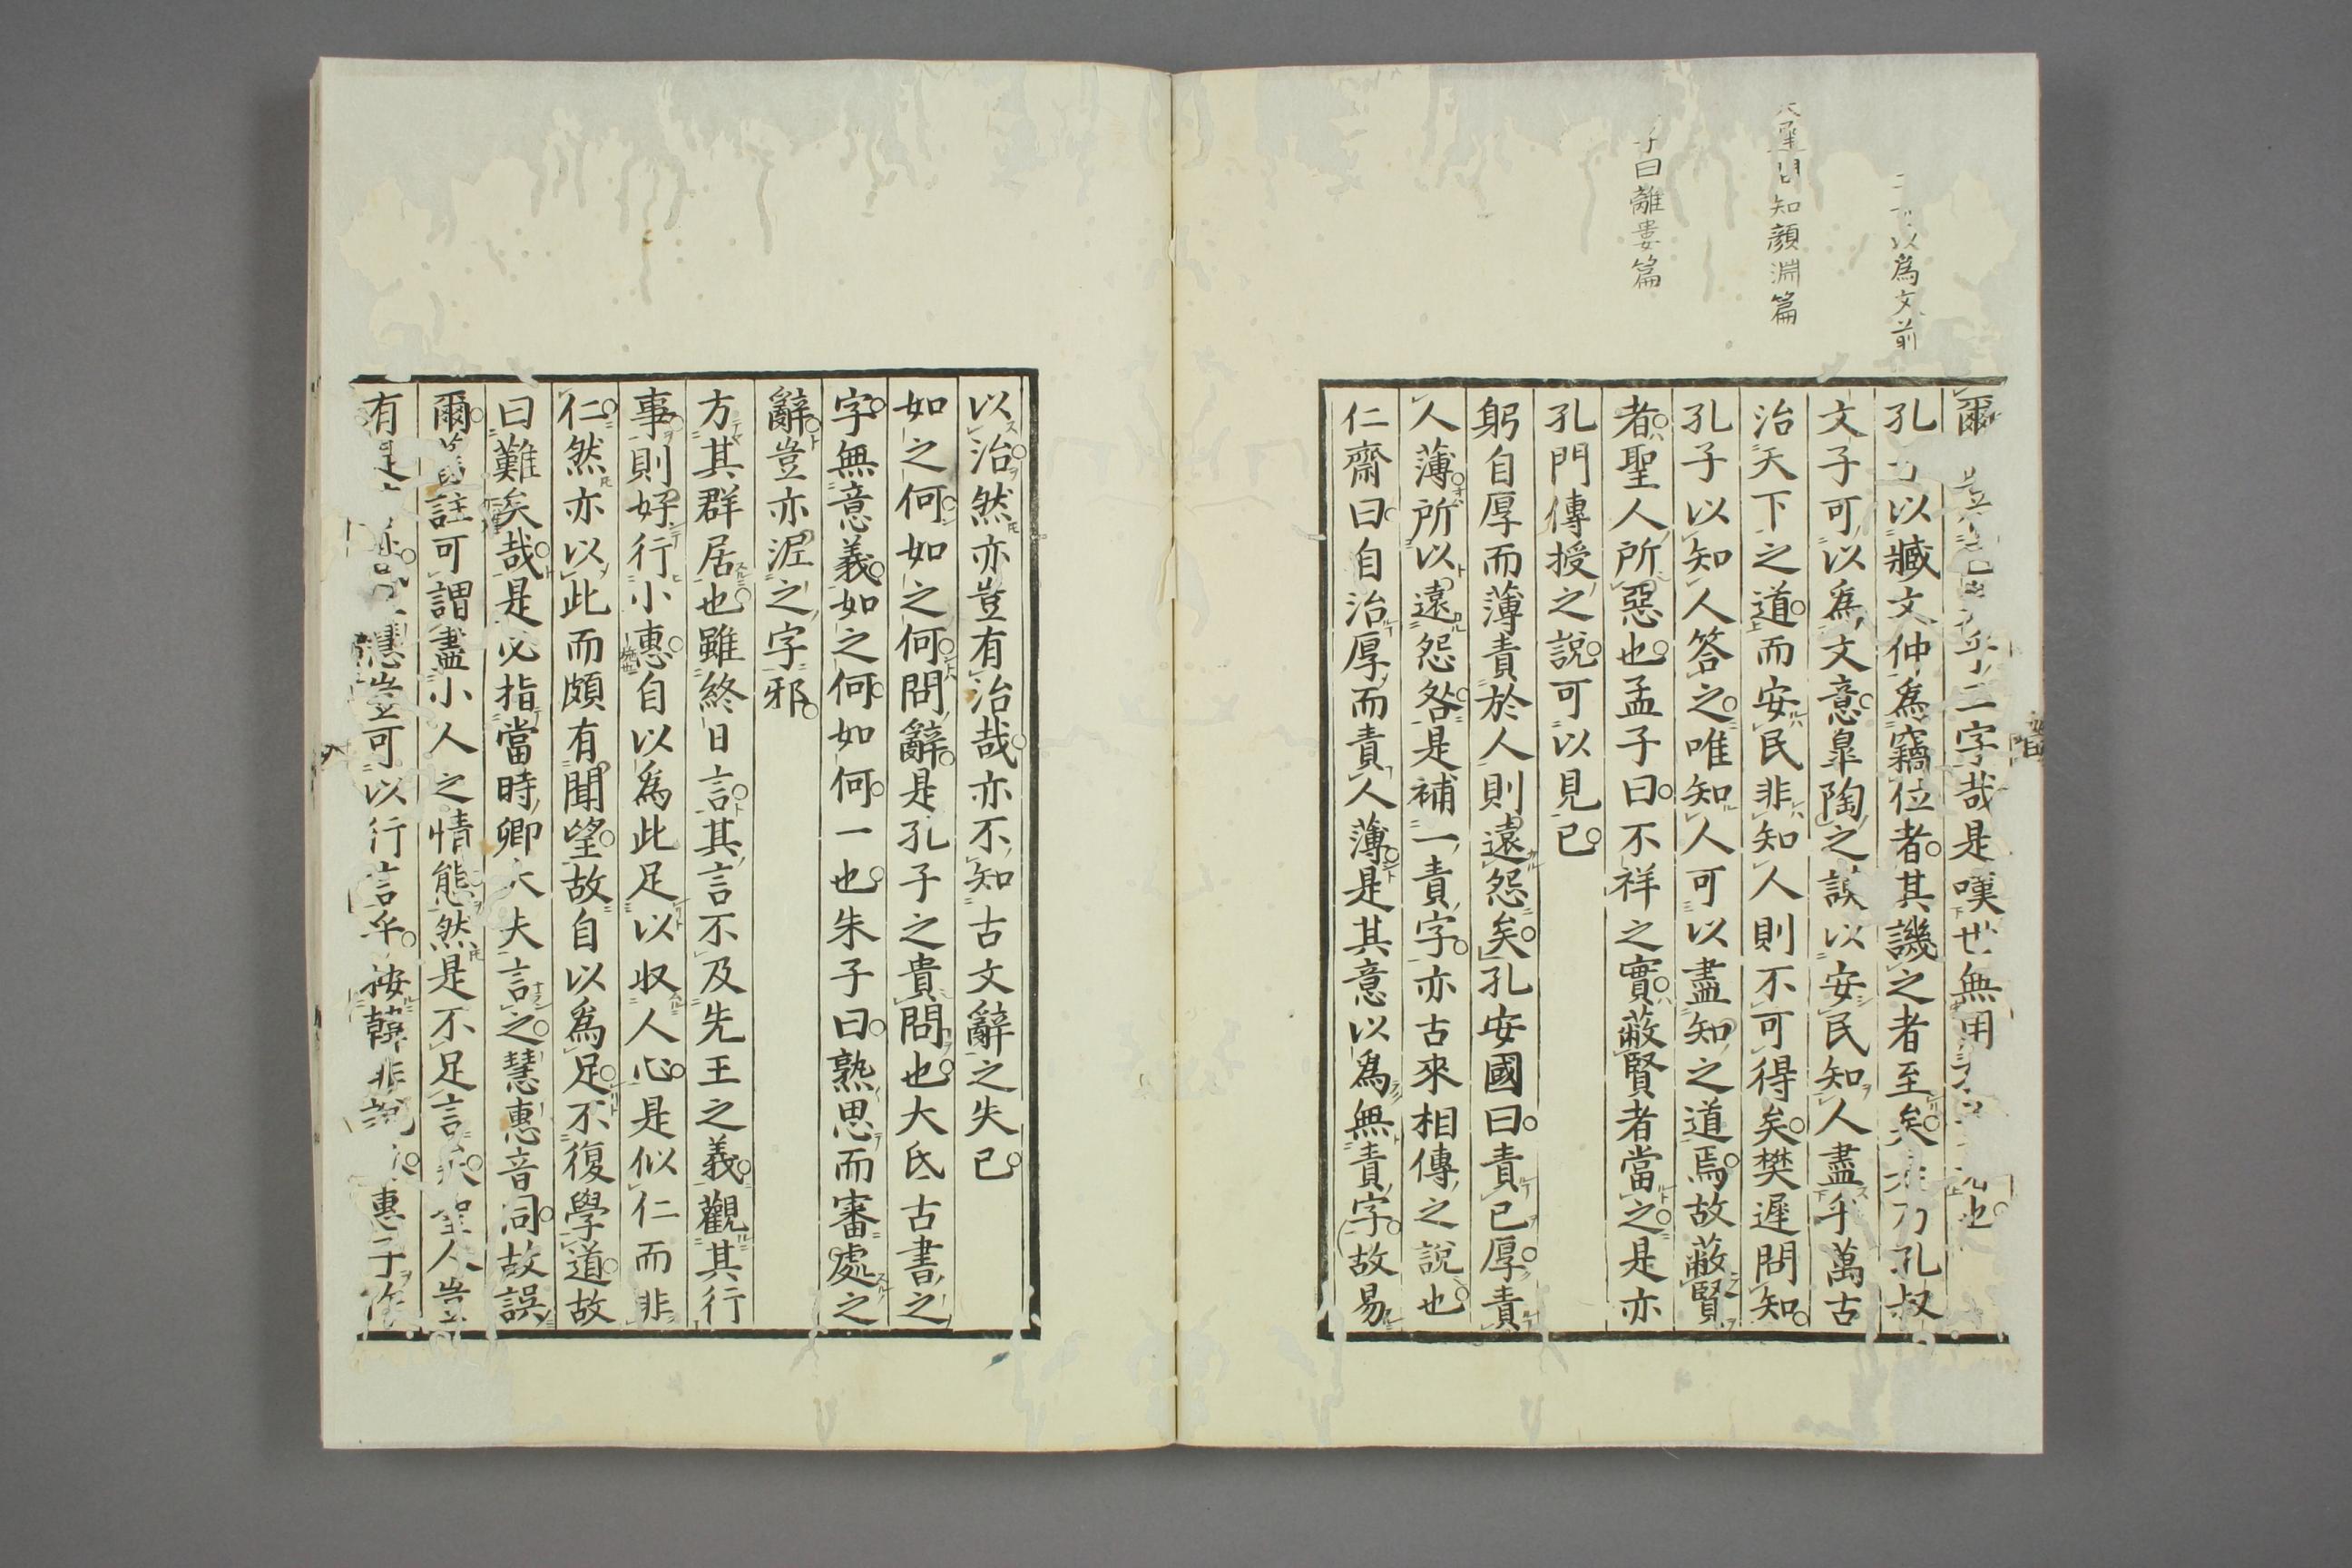 以爲文前
問知顏淵篇
子曰離婁篇
爾豈乎二字哉是嘆世無用也
孔以臧文仲爲竊位者其譏之者至矣乃孔叔
文子可以爲文意皐陶之謨以安民知人盡乎萬古
治天下之道而安民非知人則不可得矣樊遲問知
孔子以知人答之唯知人可以盡知之道焉故蔽賢
者聖人所惡也孟子曰不祥之實蔽賢者當之是亦
孔門傳授之說可以見已
躬自厚而薄責於人則遠怨矣孔安國曰責己厚責
人薄所以遠怨咎是補一責字亦古來相傳之說也
仁齋曰自治厚而責人薄是其意以爲無責字故易
以治然亦豈有治哉亦不知古文辭之失已
如之何如之何問辭是孔子之貴問也大氐古書之
字無意義如之何如何一也朱子曰熟思而審處之
辭豈亦泥之字邪
方其群居也雖終日言其言不及先王之義觀其行
事則好行小惠自以爲此足以收人心是似仁而非
仁然亦以此而頗有聞望故自以爲足不復學道故
曰難矣哉是必指當時卿大夫言之慧惠音同故誤
爾註可謂盡小人之情態然是不足言矣聖人豈
有是慧豈可以行言乎按韓非說惠子